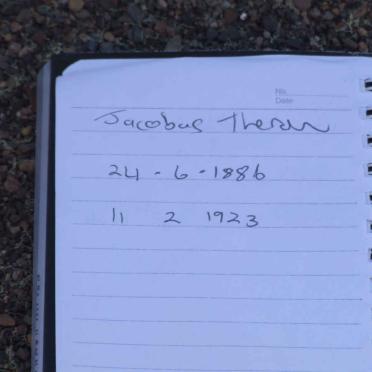 No.
Date
Jacobus Theron
24 - 6 - 1886
11 2 1923